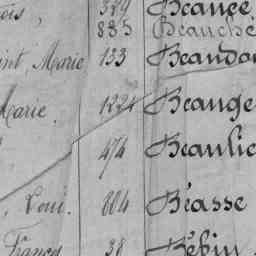 ois, 329 Beaucé
885 Beauché
int, Marie 133 Beaudo
Marie. 1221 Beauge
474 Beaulie
, Loui. 604 Béasse
Franço 38 Bébin